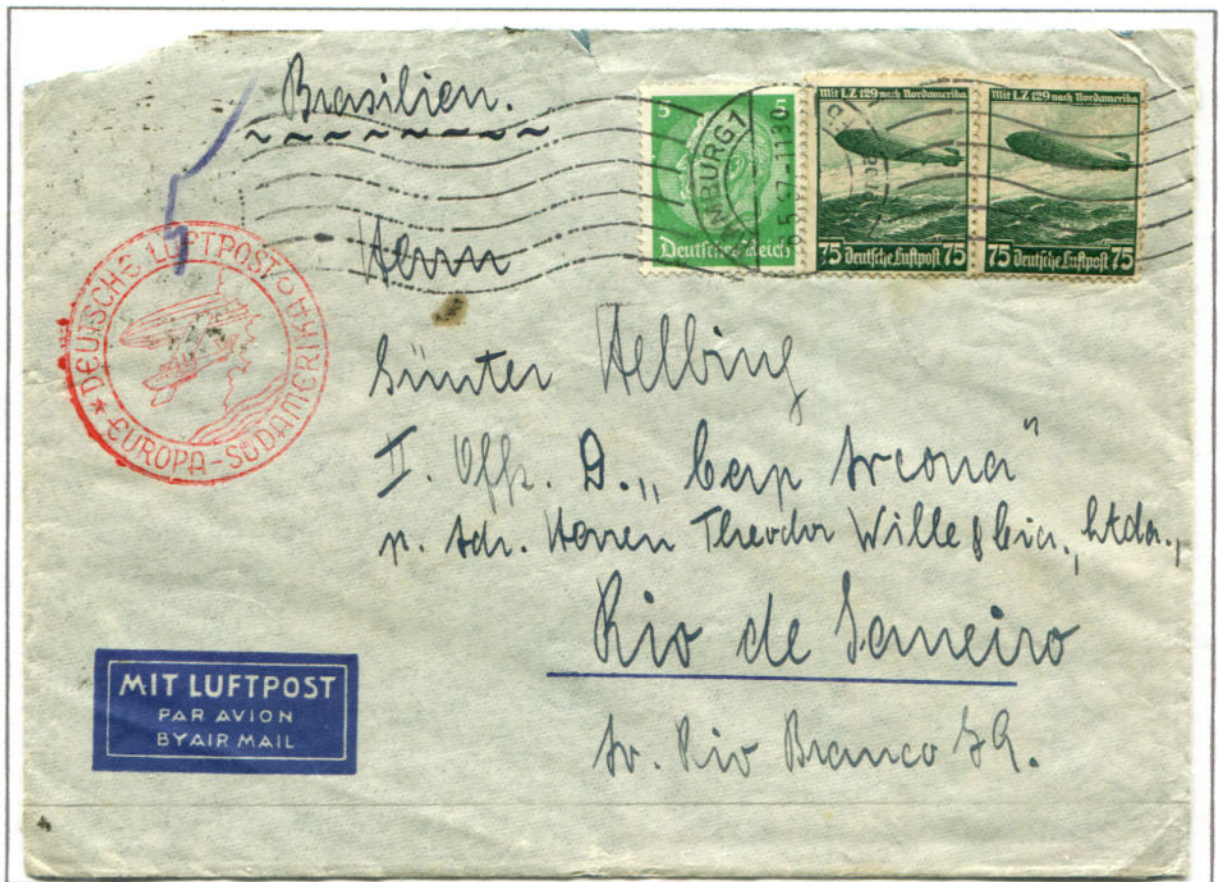 Brasilien.
5 5
Deutsches Reich
HAMBURG 1
Mit LZ 129 nach Nordamerika
75 Deutsche Luftpost 75
Mit LZ 129 nach Nordamerika
75 Deutsche Luftpost 75
DEUTSCHE LUFTPOST
EUROPA-SÜDAMERIKA
Herrn
Günter Helbing
II. Offz. D. „Cap Arcona"
p. Adr. Herren Theodor Wille & Cia., Ltda.,
Rio de Janeiro
Av. Rio Branco 79.
MIT LUFTPOST
PAR AVION
BY AIR MAIL